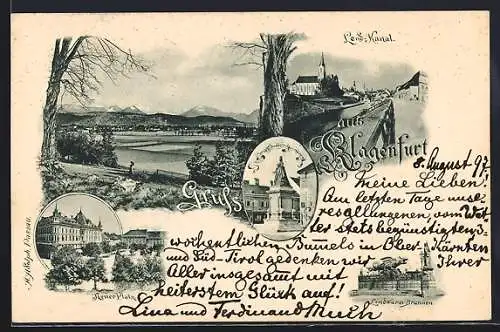 Lend-Kanal.
Gruß
aus
Klagenfurt
8. August 97.
Meine Lieben!
Am letzten Tage unse-
res allungenen, vom Wet-
ter stets begünstigten 3-
wöchentlichen Bumels in Ober-Kärnten
und Süd-Tirol gedenken wir Ihrer
Aller insgesamt mit
heiterstem Glück auf!
Lina und Ferdinand
Neuer Platz.
Lindwurm-Brunnen